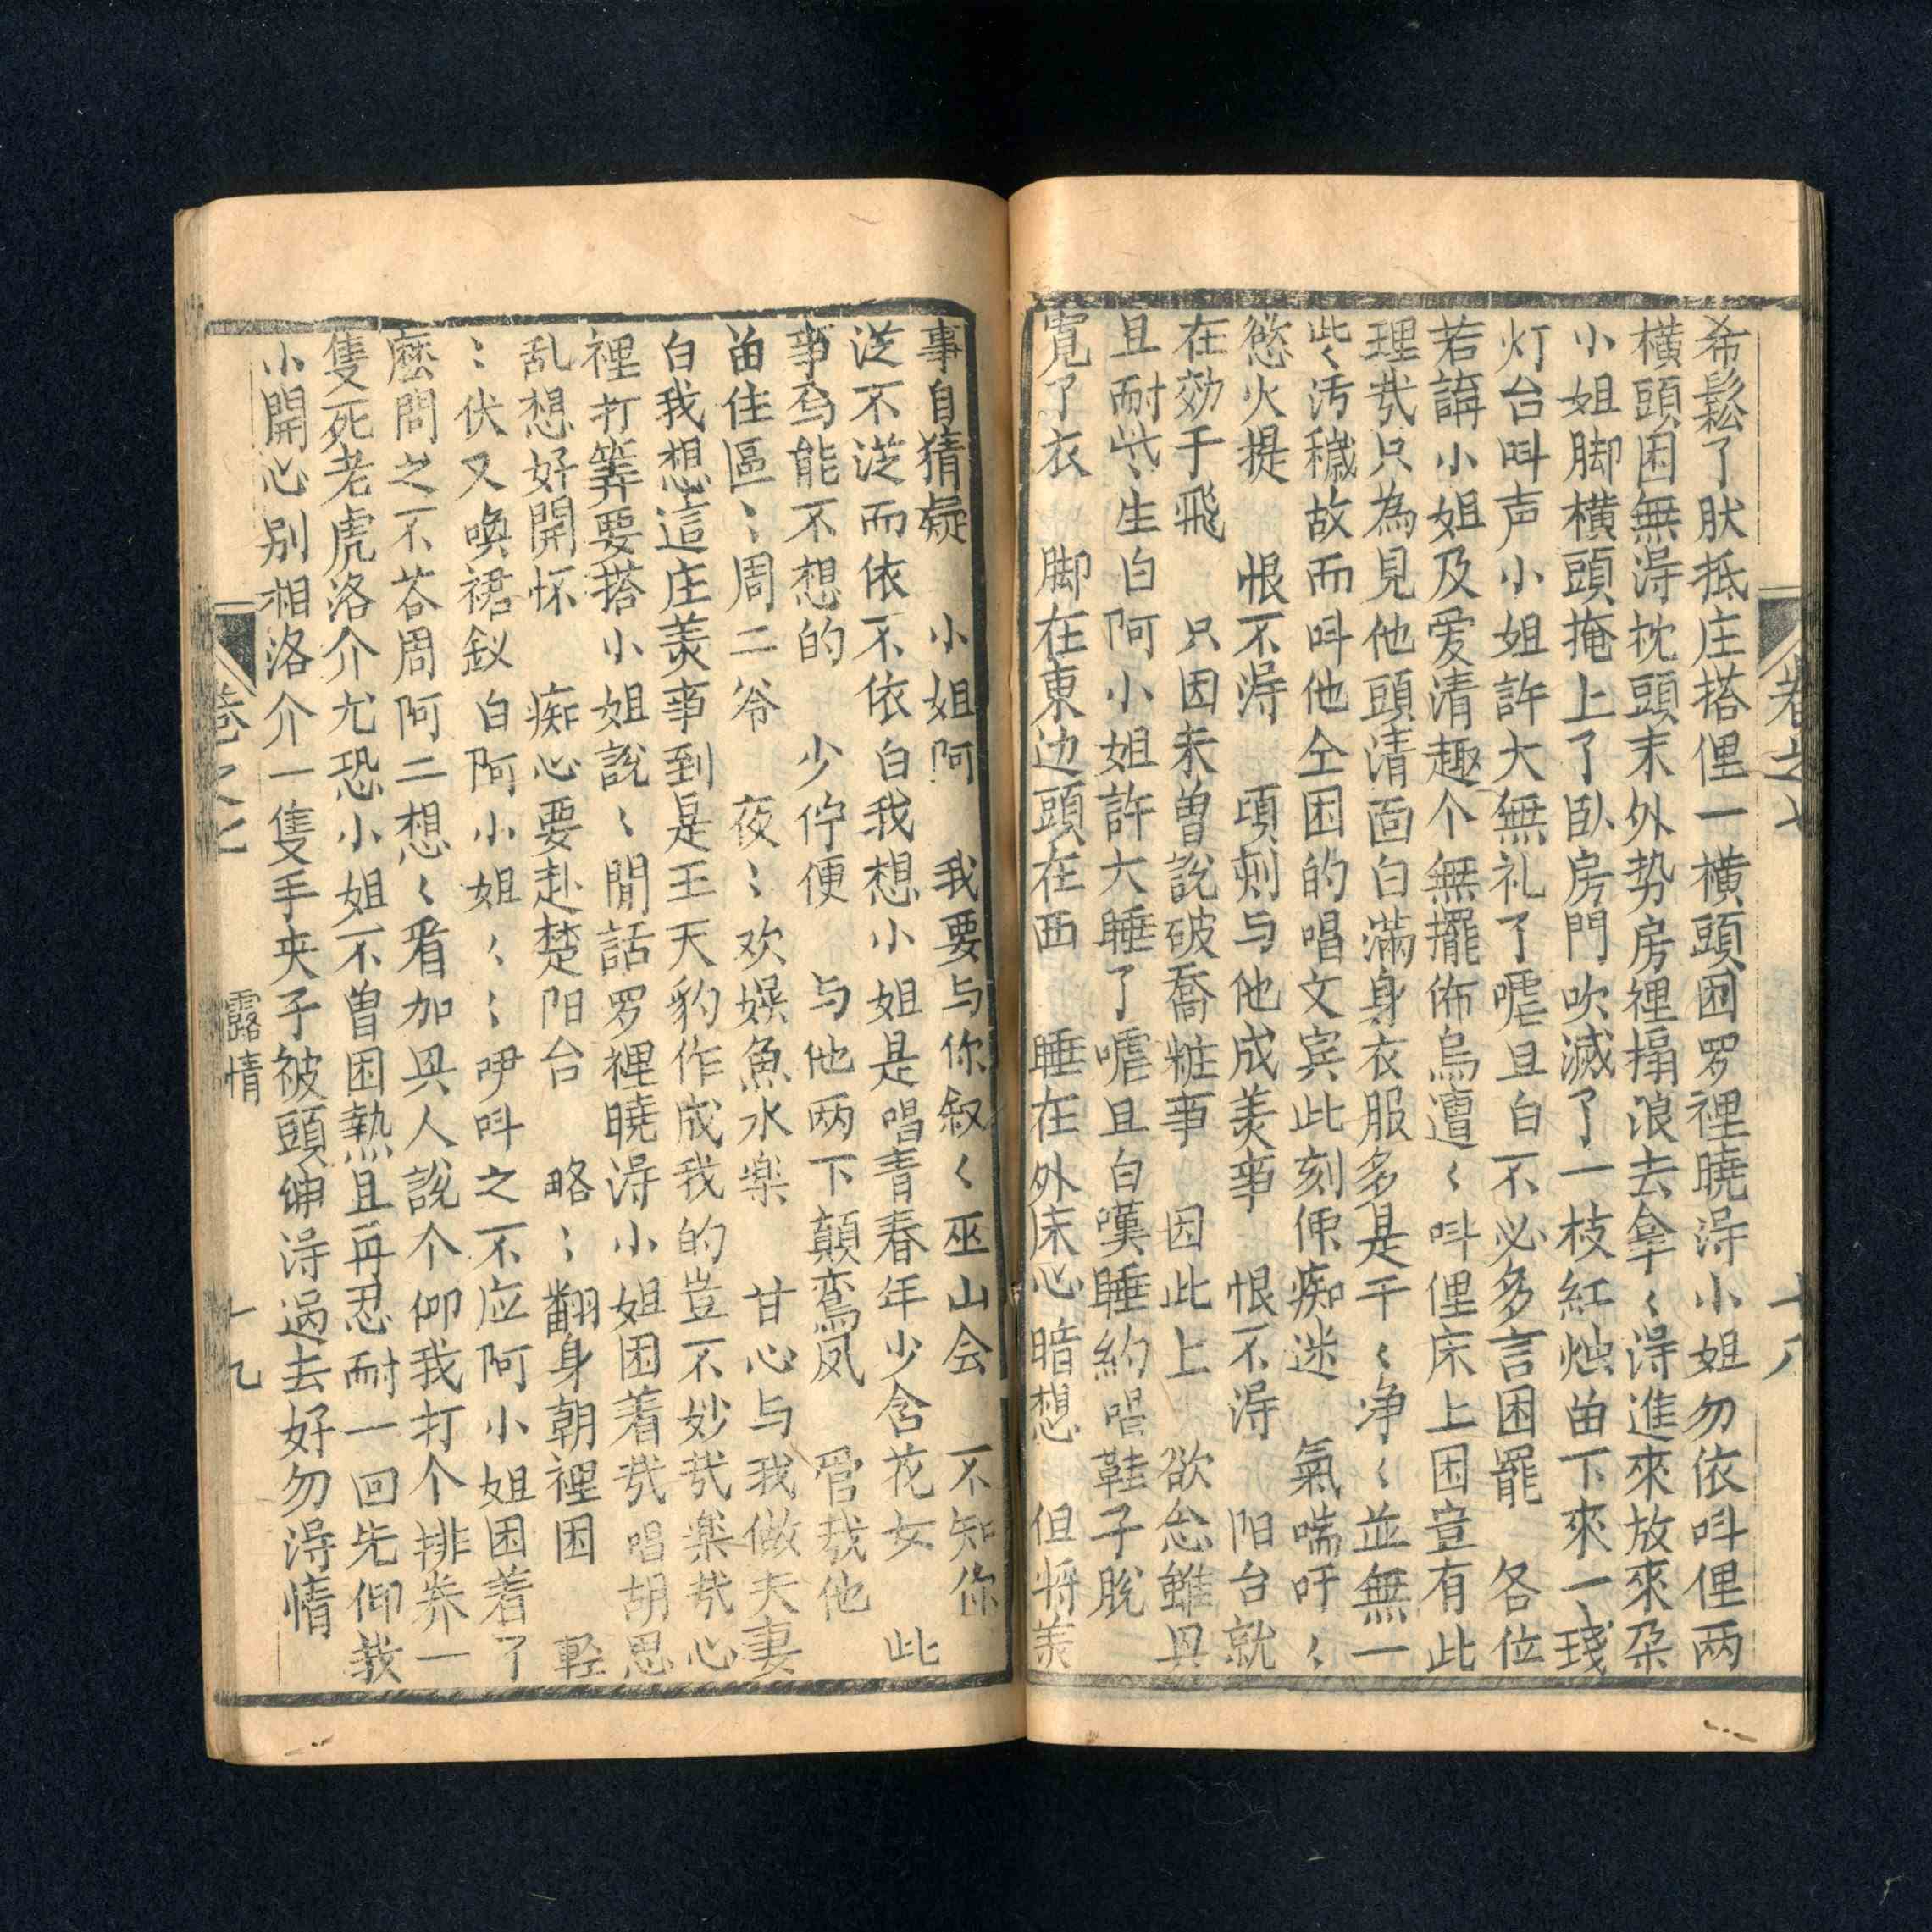 希鬆了肰抵庄搭俚一橫頭困罗裡曉淂小姐勿依呌俚两
橫頭困無淂枕頭末外势房裡搨浪去拿〻淂進來放來朶
小姐脚橫頭掩上了卧房門吹滅了一枝紅烛畄下來一琖
灯台呌声小姐許大無礼了嘘且白不必多言困罷　各位
若講小姐及爱清趣个無擺佈烏遭〻呌俚床上困豈有此
理㢤只為見他頭清面白滿身衣服多是干〻净〻並無一
些〻汚穢故而呌他仝困的唱文宾此刻便痴迷　氣喘吁〻
慾火提　恨不淂　頃刻与他成美事　恨不淂　阳台就
在効于飛　只因未曽說破喬粧事　因此上　欲念雖具
且耐些〻生白阿小姐許大睡了嘘且白嘆睡約唱鞋子脫
寛了衣　脚在東边頭在西　睡在外床心暗想　但将美
卷之七
十八
事自猜疑　小姐阿　我要与你叙〻巫山会　不知你
泛不泛而依不依白我想小姐是唱青春年少含花女　此
事焉能不想的　少停便　与他两下顛鸾凤　管我他
畄住區〻周二爷　夜〻欢娱魚水樂　甘心与我做夫妻
白我想這庄美事到是王天豹作成我的豈不妙㢤樂㢤心
裡打筭要搭小姐說〻閒話罗裡曉淂小姐困着㢤唱胡思
乱想好開怀　痴心要赴楚阳台　略〻翻身朝裡困　輕
〻伏又喚裙釵白阿小姐〻〻吚呌之不应阿小姐困着了
麽問之不荅周阿二想〻看加具人說个仰我打个排养一
隻死老虎洛介尤恐小姐不曽困熱且再忍耐一回先仰我
小開心别相洛介一隻手夹子被頭伸淂過去好勿淂情
卷之七
露情
十九